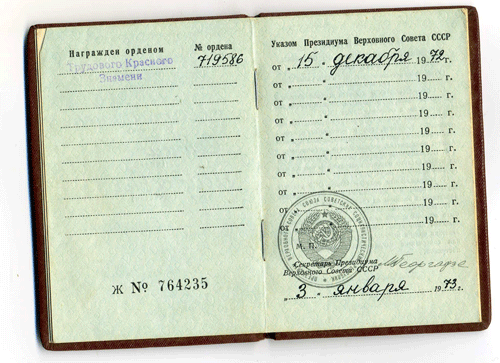 Награжден орденом
№ ордена
Трудового Красного
Знамени
719586
Ж № 764235
Указом Президиума Верховного Совета СССР
от „ 15 " декабря 1972 г.
от „ " 19 г.
от „ " 19 г.
от „ " 19 г.
от „ " 19 г.
от „ " 19 г.
от „ " 19 г.
от „ " 19 г.
от „ " 19 г.
М. П.
Секретарь Президиума
Верховного Совета СССР
„ 3 " января 1973 г.